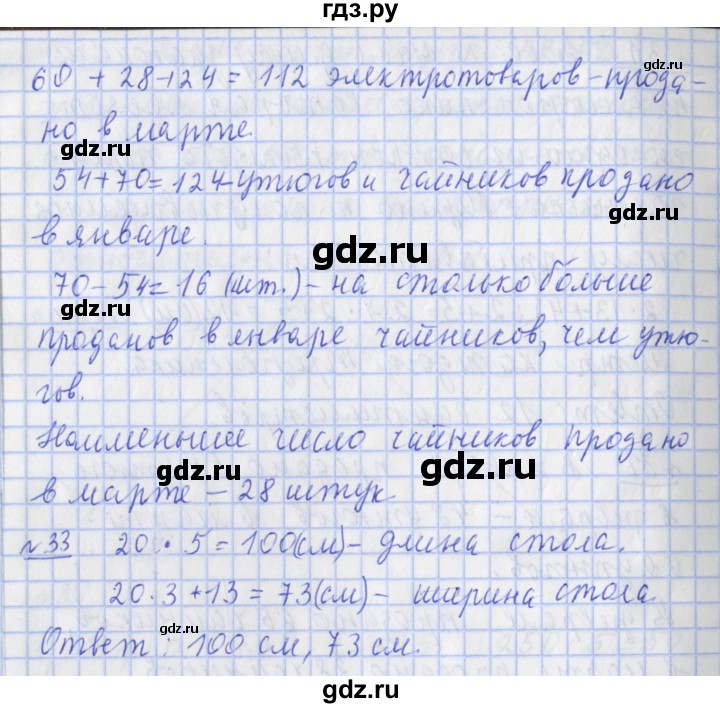 гдз.ру
60 + 28 + 24 = 112 электротоваров - прода-
но в марте.
54 + 70 = 124 - утюгов и чайников продано
в январе.
70 - 54 = 16 (шт.) - на столько больше
проданов в январе чайников, чем утю-
гов.
Наименьшее число чайников продано
в марте - 28 штук
№33 20 · 5 = 100 (см) - длина стола.
20 · 3 + 13 = 73 (см) - ширина стола.
Ответ: 100 см, 73 см.
gdz.ru
gdz.ru
gdz.ru
gdz.ru
gdz.ru
gdz.ru
gdz.ru
gdz.ru
gdz.ru